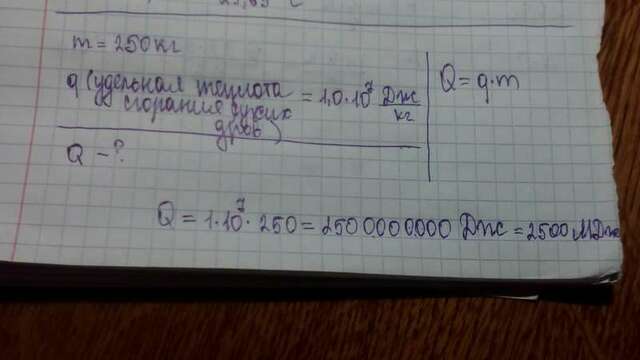 m = 250 кг
q (удельная теплота сгорания сухих дров) = 1,0·10⁷ Дж/кг
Q = q·m
Q – ?
Q = 1·10⁷·250 = 2500000000 Дж = 2500 МДж